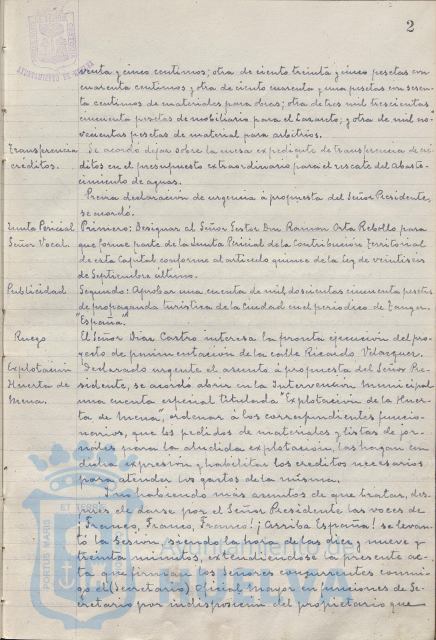 2
AYUNTAMIENTO DE HUELVA
renta y cinco centimos; otra de ciento treinta y cinco pesetas con
cuarenta centimos y otra de ciento cuarenta y una pesetas con sesen-
ta centimos de materiales para obras; otra de tres mil trescientas
cincuenta pesetas de mobiliario para el Lazareto; y otra de mil no-
vecientas pesetas de material para arbitrios.
Transferencia créditos.
Se acordó dejar sobre la mesa expediente de transferencia de cré-
ditos en el presupuesto extraordinario para el rescate del Abaste-
cimiento de aguas.
Previa declaración de urgencia á propuesta del Señor Presidente,
se acordó.
Junta Pericial Señor Vocal.
Primero; Designar al Señor Gestor Don Ramon Orta Rebollo para
que forme parte de la Junta Pericial de la Contribución Territorial
de esta Capital conforme al articulo quince de la Ley de veintiseis
de Septiembre último.
Publicidad
Segundo: Aprobar una cuenta de mil doscientas cincuenta pesetas
de propaganda turistica de la Ciudad en el periodico de Tanger
"España".
Ruego
El Señor Diaz Castro interesa la pronta ejecución del pro-
yecto de pavimentación de la calle Ricardo Velazquez.
Explotación Huerta de Mena.
Declarado urgente el asunto á propuesta del Señor Pre-
sidente, se acordó abrir en la Intervención municipal
una cuenta especial titulada "Explotación de la Huer-
ta de Mena", ordenar á los correspondientes funcio-
narios, que los pedidos de materiales y listas de jor-
nales para la aludida explotación, las hagan con
dicha expresión y habilitar los creditos necesarios
para atender los gastos de la misma.
Y no habiendo más asuntos de que tratar, des-
pués de darse por el Señor Presidente las voces de
¡Franco, Franco, Franco! ¡Arriba España! se levan-
tó la Sesión, siendo la hora de las diez y nueve y
treinta minutos, extendiéndose la presente ac-
ta que firman los Señores concurrentes conmi-
go el (Secretario) Oficial Mayor en funciones de Se-
cretario por indisposición del propietario que
PORTUS MARIS
Ayuntamiento de
HUELVA